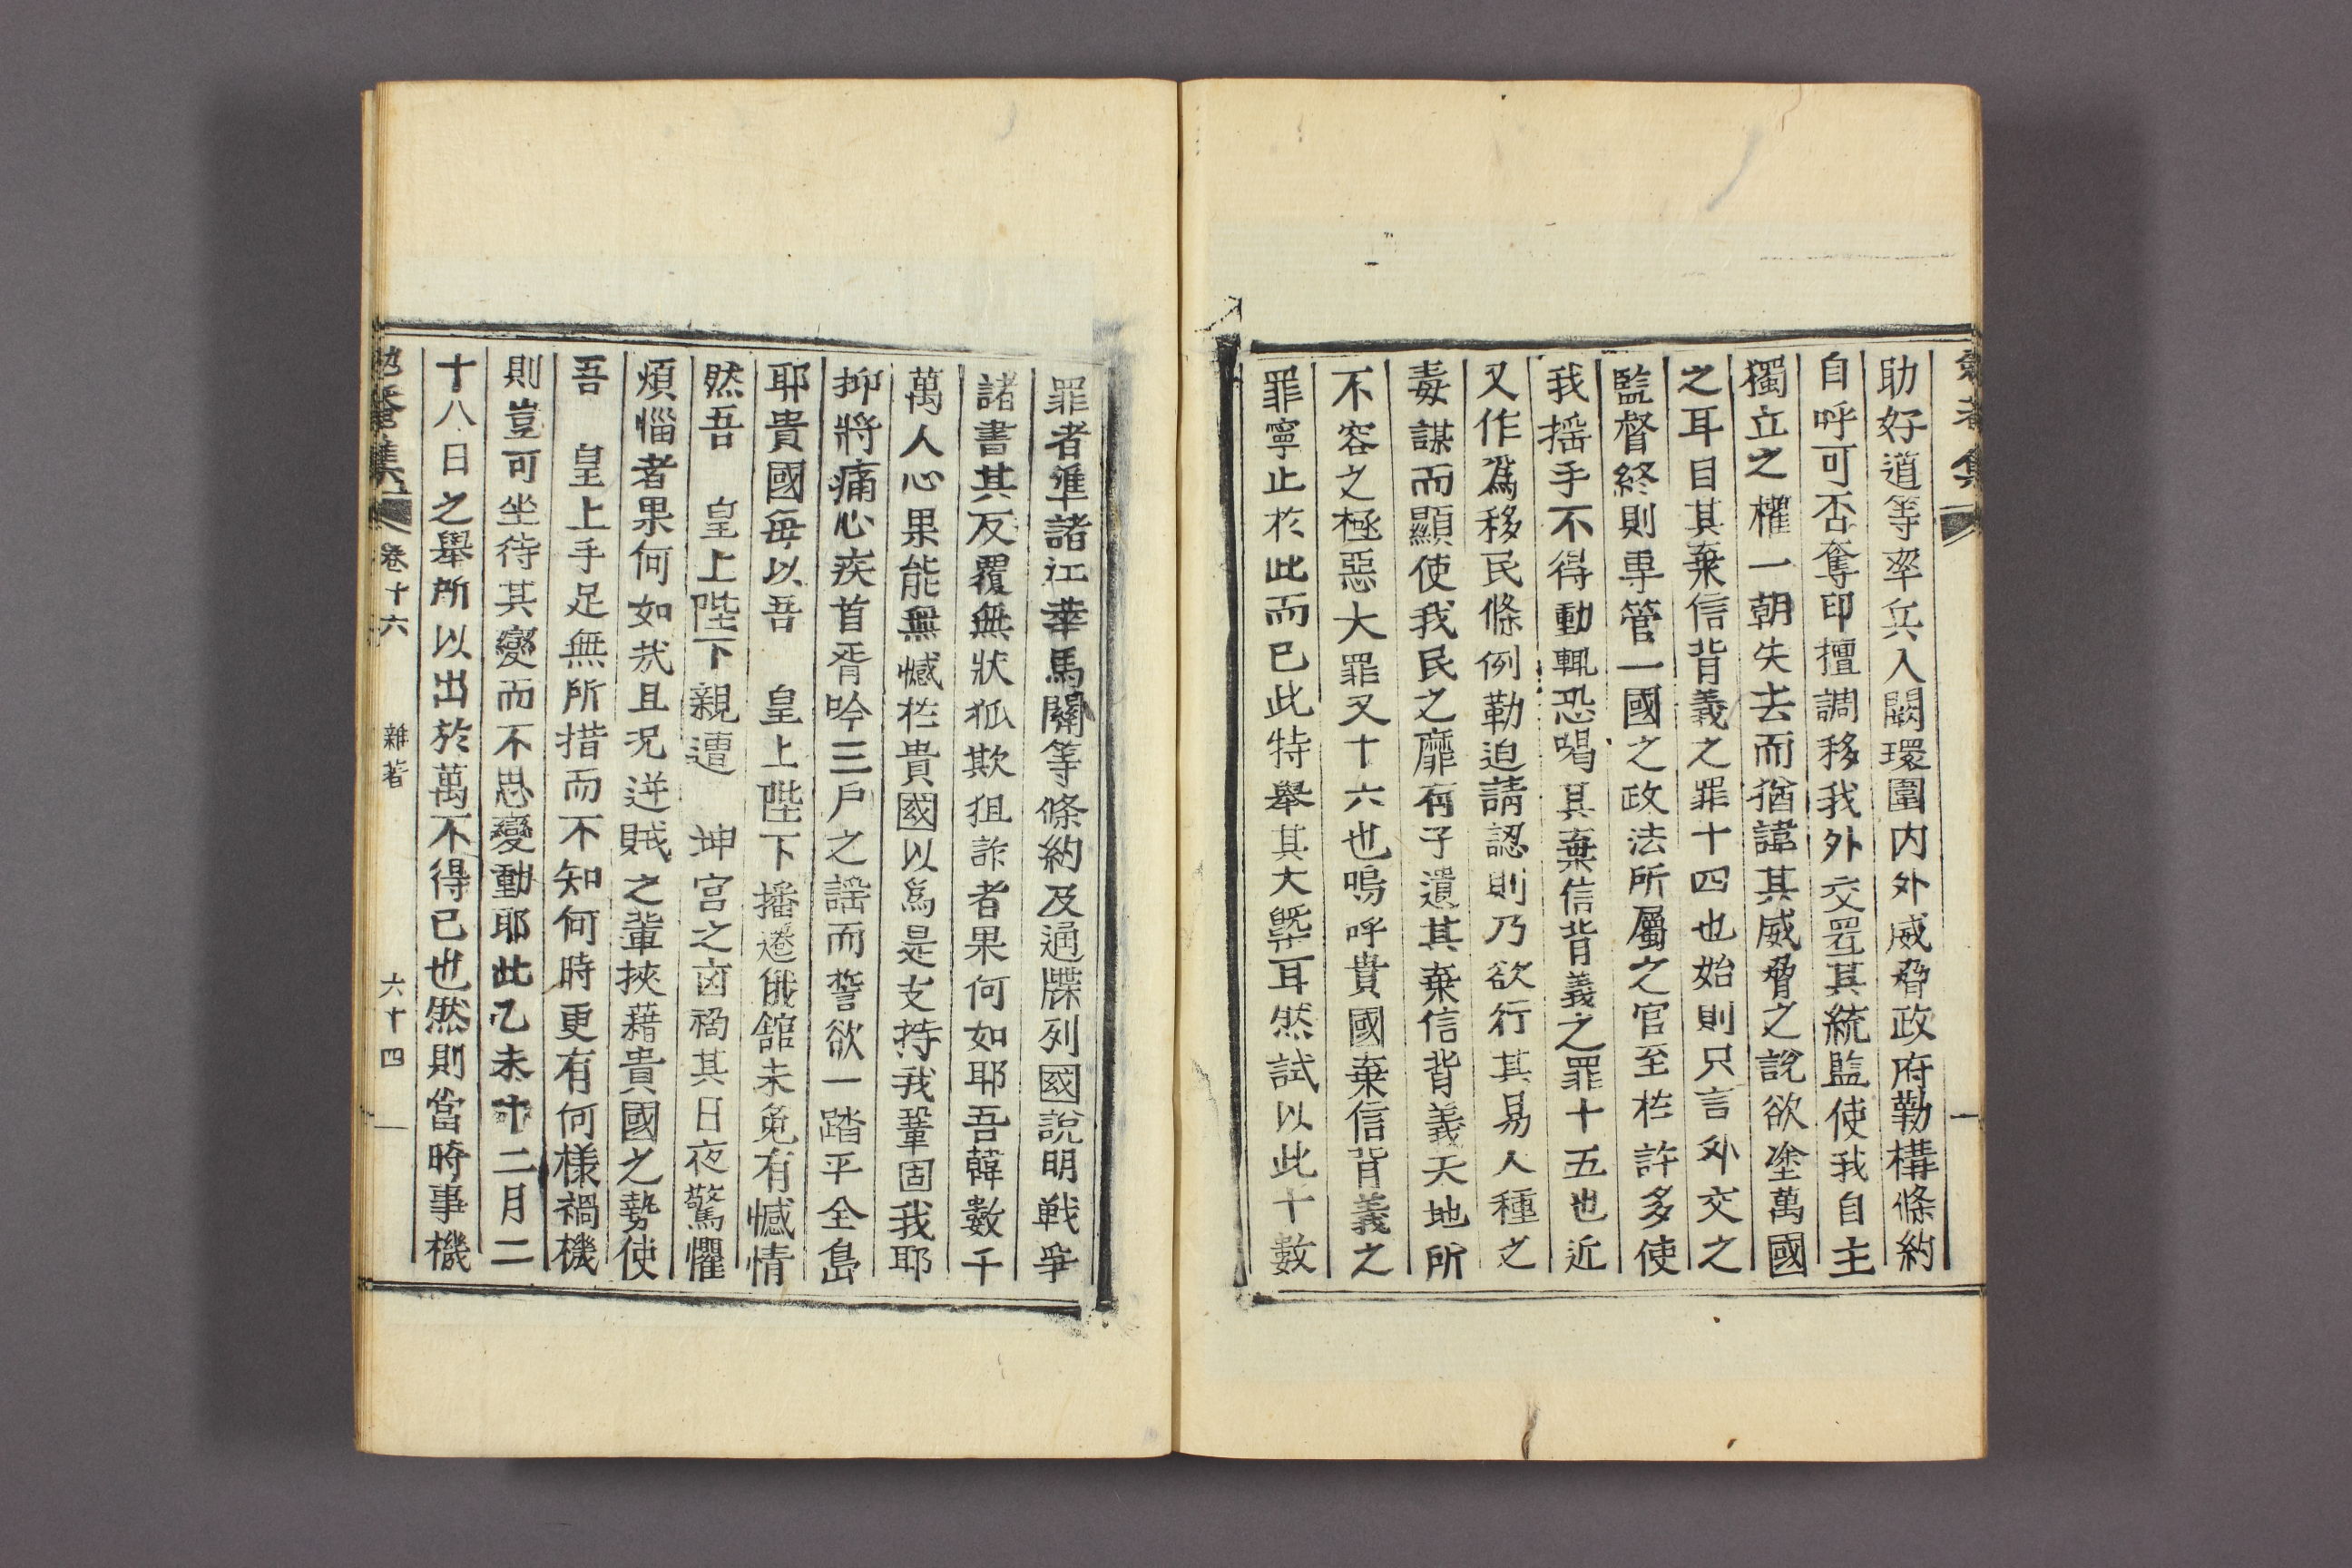 助好道等率兵入闕環圍內外威脅政府勒構條約
自呼可否奪印擅調移我外交置其統監使我自主
獨立之權一朝失去而猶諱其威脅之說欲塗萬國
之耳目其棄信背義之罪十四也始則只言外交之
監督終則專管一國之政法所屬之官至於許多使
我搖手不得動輒恐喝其棄信背義之罪十五也近
又作爲移民條例勒迫請認則乃欲行其易人種之
毒謀而顯使我民之靡有孑遺其棄信背義天地所
不容之極惡大罪又十六也嗚呼貴國棄信背義之
罪寧止於此而已此特擧其大槩耳然試以此十數
罪者準諸江華馬關等條約及通牒列國說明戰爭
諸書其反覆無狀狐欺狙詐者果何如耶吾韓數千
萬人心果能無憾於貴國以爲是支持我鞏固我耶
抑將痛心疾首胥吟三戶之謠而誓欲一踏平全島
耶貴國每以吾 皇上陛下播遷俄館未免有憾情
然吾 皇上陛下親遭 坤宮之凶禍其日夜驚懼
煩惱者果何如哉且況逆賊之輩挾藉貴國之勢使
吾 皇上手足無所措而不知何時更有何樣禍機
則豈可坐待其變而不思變動耶此乙未十二月二
十八日之擧所以出於萬不得已也然則當時事機
勉菴集 卷十六 雜著 六十四